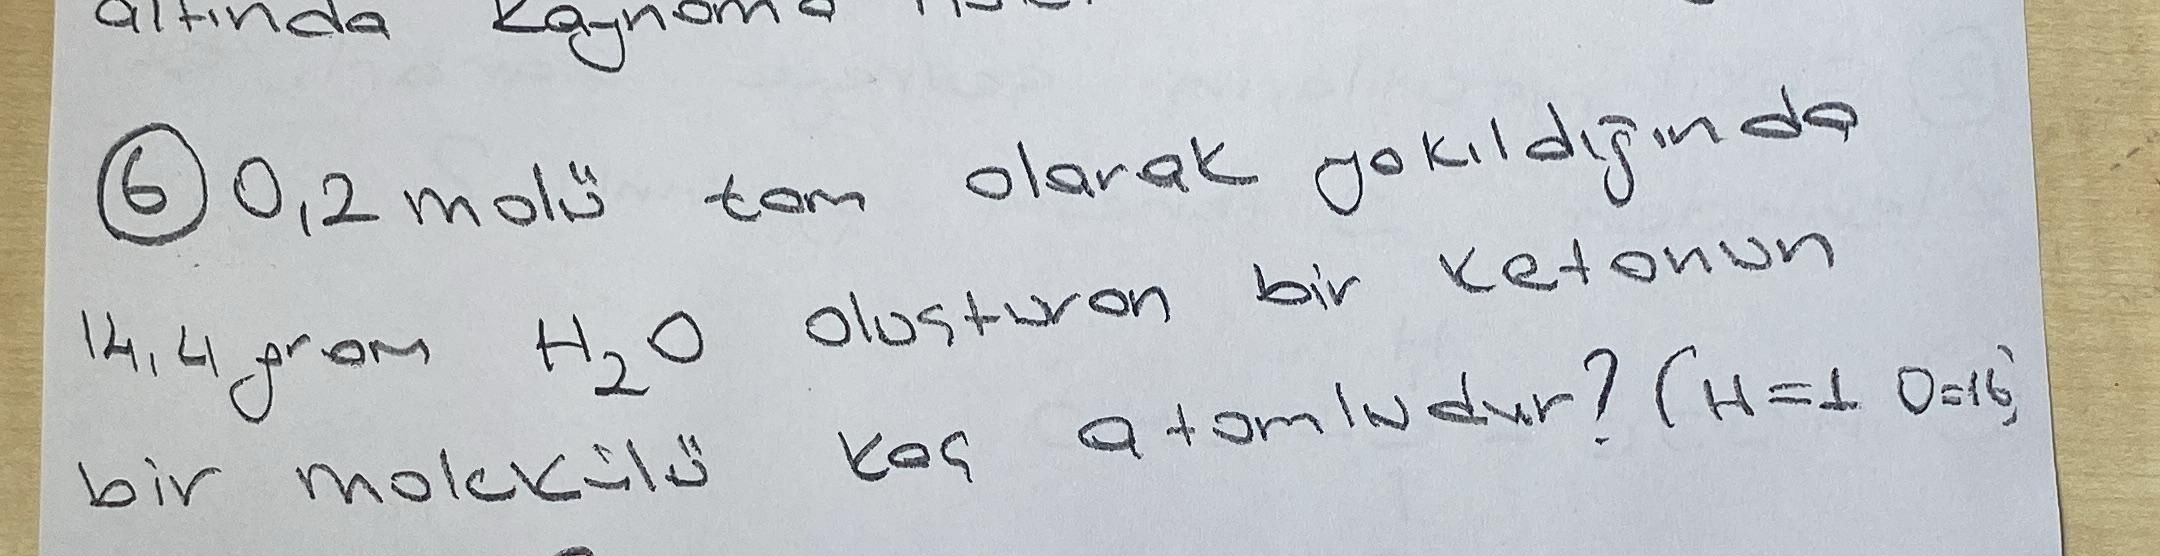 altında kaynama
⑥ 0,2 molü tam olarak yakıldığında
14,4 gram H₂O oluşturan bir ketonun
bir molekülü kaç atomludur? (H=1 O=16)